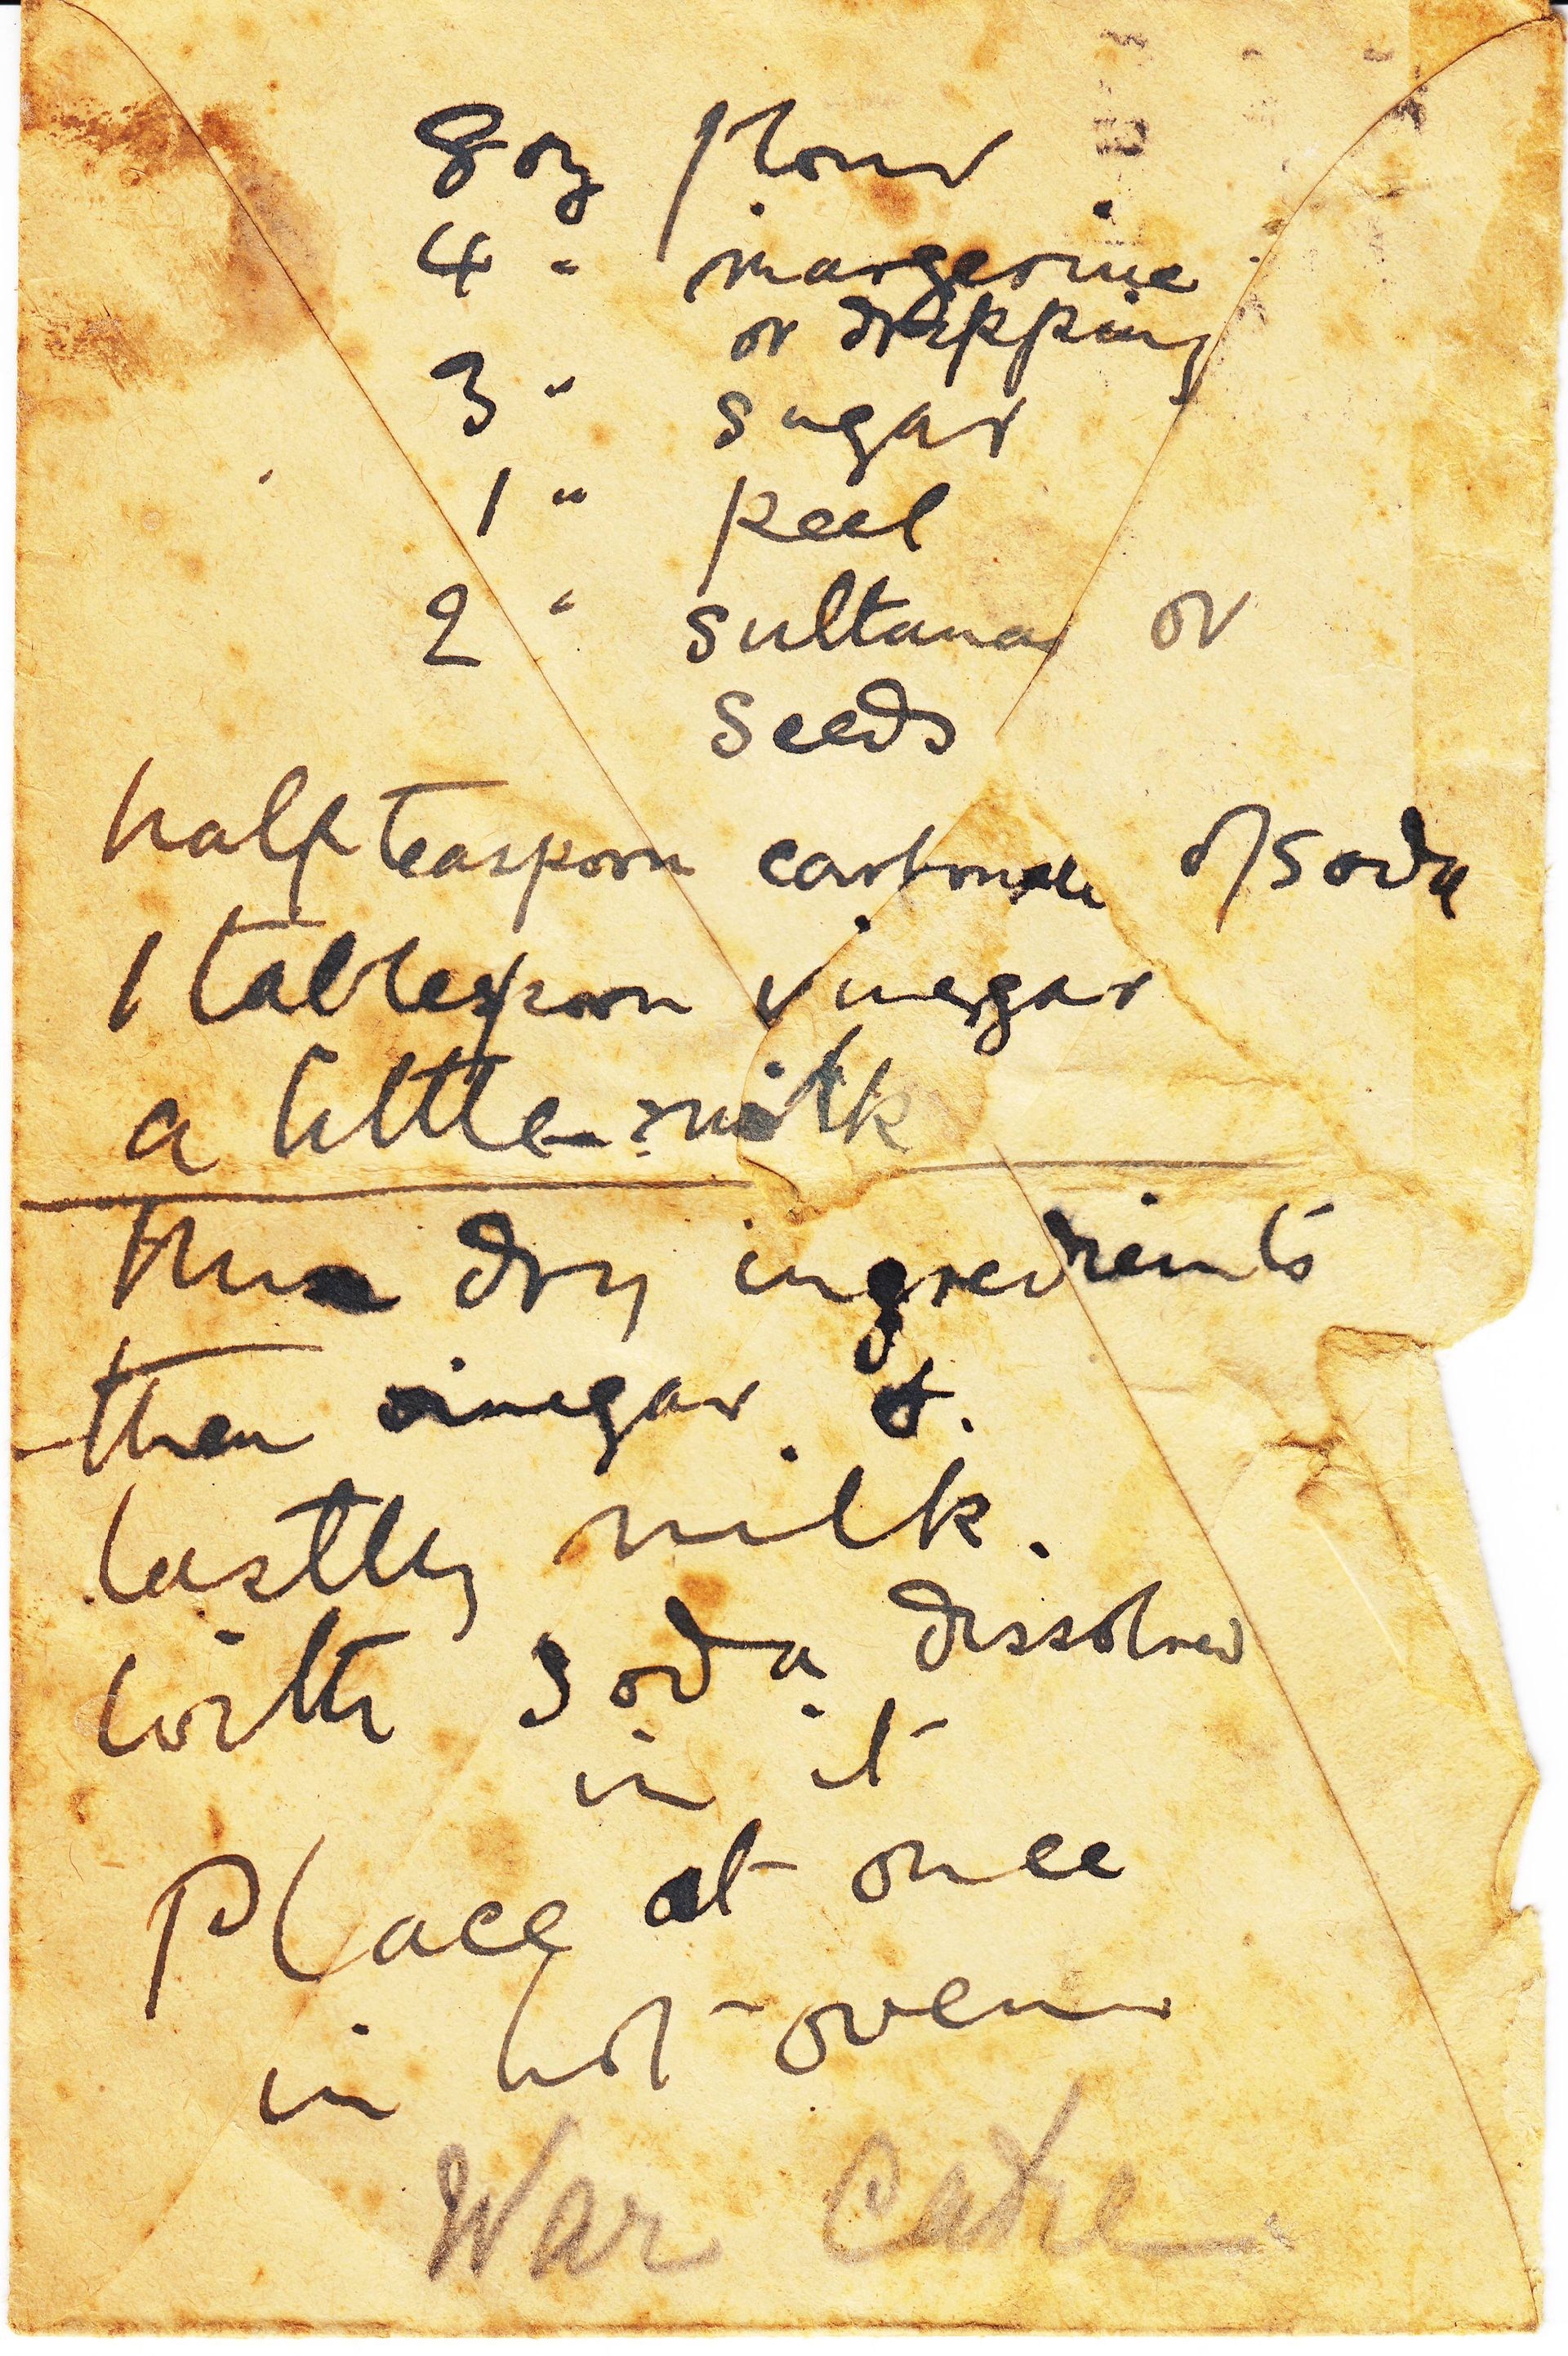 8 oz flour
4 " margerine
or dripping
3 " sugar
1 " peel
2 " sultanas or
seeds
half teaspoon carbonate of soda
1 tablespoon vinegar
a little milk
dry ingredients
then vinegar &
lastly milk.
with soda dissolved
in it
Place at once
in hot oven
War Cake